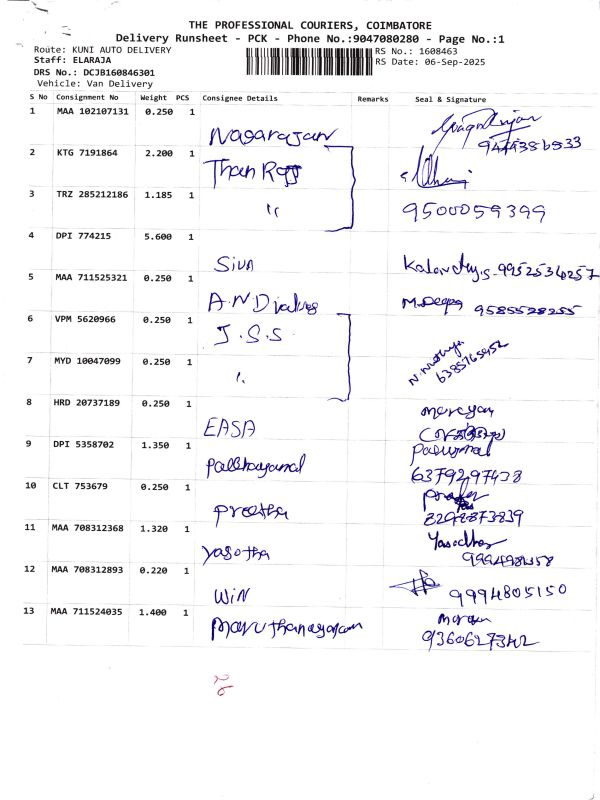 THE PROFESSIONAL COURIERS, COIMBATORE
Delivery Runsheet - PCK - Phone No.:9047080280 - Page No.:1
Route: KUNI AUTO DELIVERY
RS No.: 1608463
Staff: ELARAJA
RS Date: 06-Sep-2025
DRS No.: DCJB160846301
Vehicle: Van Delivery
S No Consignment No Weight PCS Consignee Details Remarks Seal & Signature
1 MAA 102107131 0.250 1
Nagarajan
2 KTG 7191864 2.200 1
Than Raj
3 TRZ 285212186 1.185 1
" 9500059399
4 DPI 774215 5.600 1
Siva 9952536257
5 MAA 711525321 0.250 1
A.N.D valves M.Deepa 9585528255
6 VPM 5620966 0.250 1
J.S.S.
7 MYD 10047099 0.250 1
" 6385765952
8 HRD 20737189 0.250 1
EASA
9 DPI 5358702 1.350 1
6379297438
10 CLT 753679 0.250 1
Preetha
11 MAA 708312368 1.320 1
Yasotha
12 MAA 708312893 0.220 1
WiN 9994805150
13 MAA 711524035 1.400 1
Maruthanayagam
9360627342